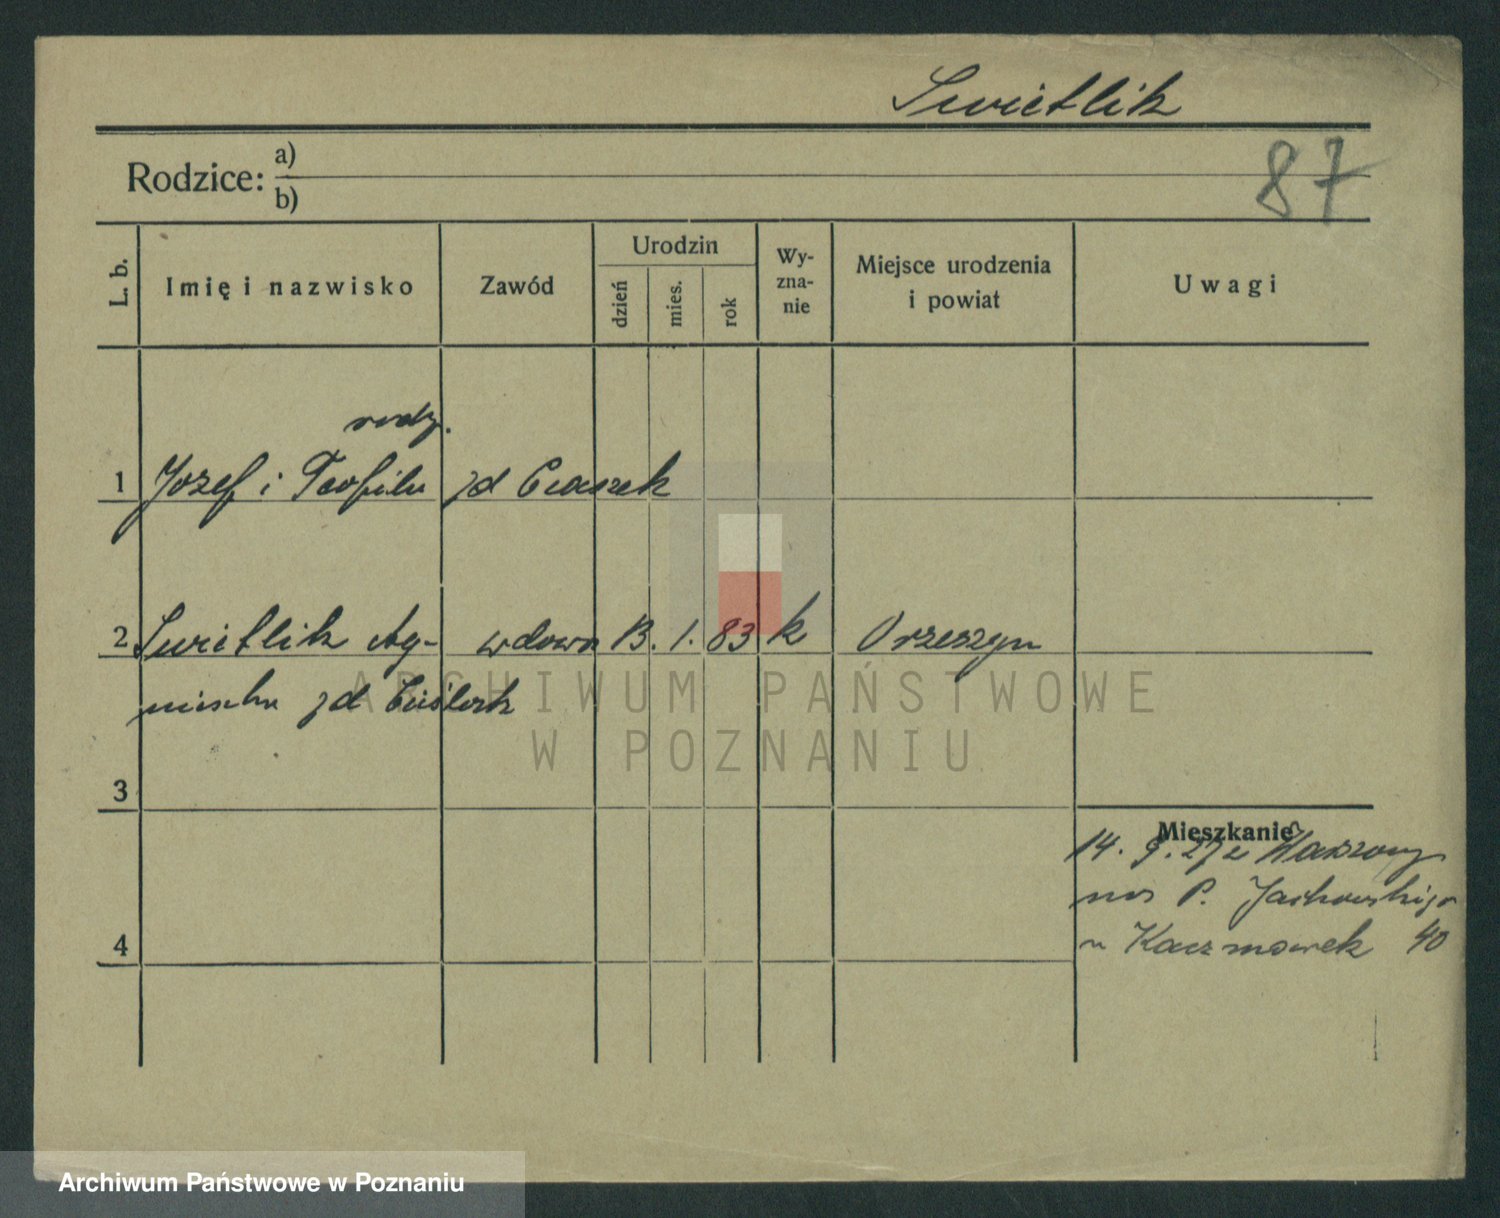 Swietlik
87
Rodzice: a)
b)
L. b.
Imię i nazwisko
Zawód
Urodzin
dzień
mies.
rok
Wy-
zna-
nie
Miejsce urodzenia
i powiat
Uwagi
rodz.
1 Jozef i Teofila zd Ciaszek
2 Swietlik Ag- wdowa 13. 1. 83 k Orzeszyn
nieszka zd Cieślock
3
4
Mieszkanie
14. 9. 27 z
nos P. Jachowskiego
u Kaczmarek 40
ARCHIWUM PAŃSTWOWE
W POZNANIU
Archiwum Państwowe w Poznaniu